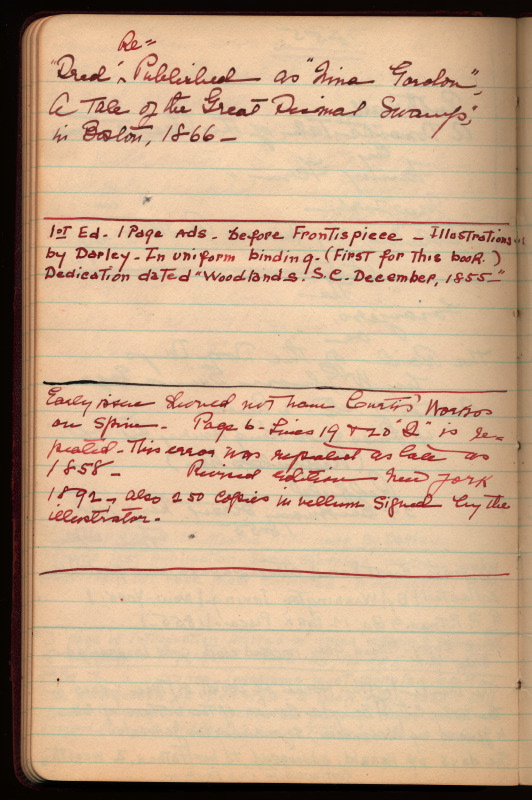 Re=
"Dred", Published as "Nina Gordon",
A Tale of the Great Dismal Swamp",
in Boston, 1866 -
1st Ed. 1 Page Ads. before Frontispiece - Illustrations
by Darley - In uniform binding. (First for this book.)
Dedication dated "Woodlands. S.C. December, 1855-"
Early issue should not have Curtis' Works
on Spine - Page 6 - Lines 19 & 20 "I" is re-
peated - This error was repeated as late as
1858 - Revised edition New York
1892 - also 250 copies in vellum Signed by the
illustrator.